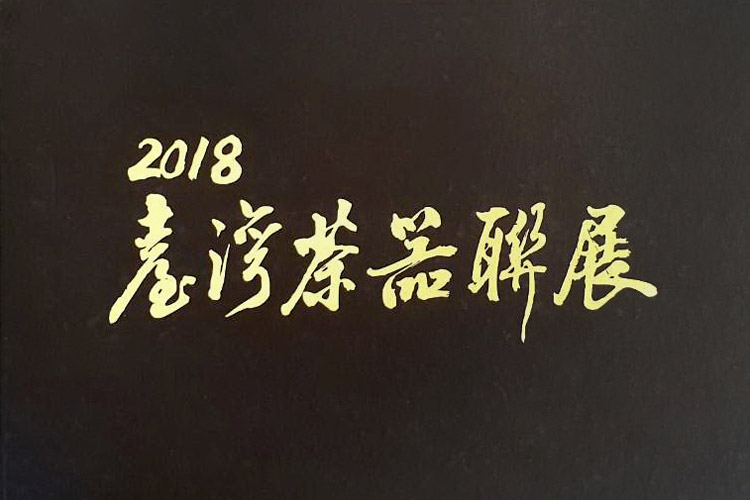 2018
臺灣茶器聯展